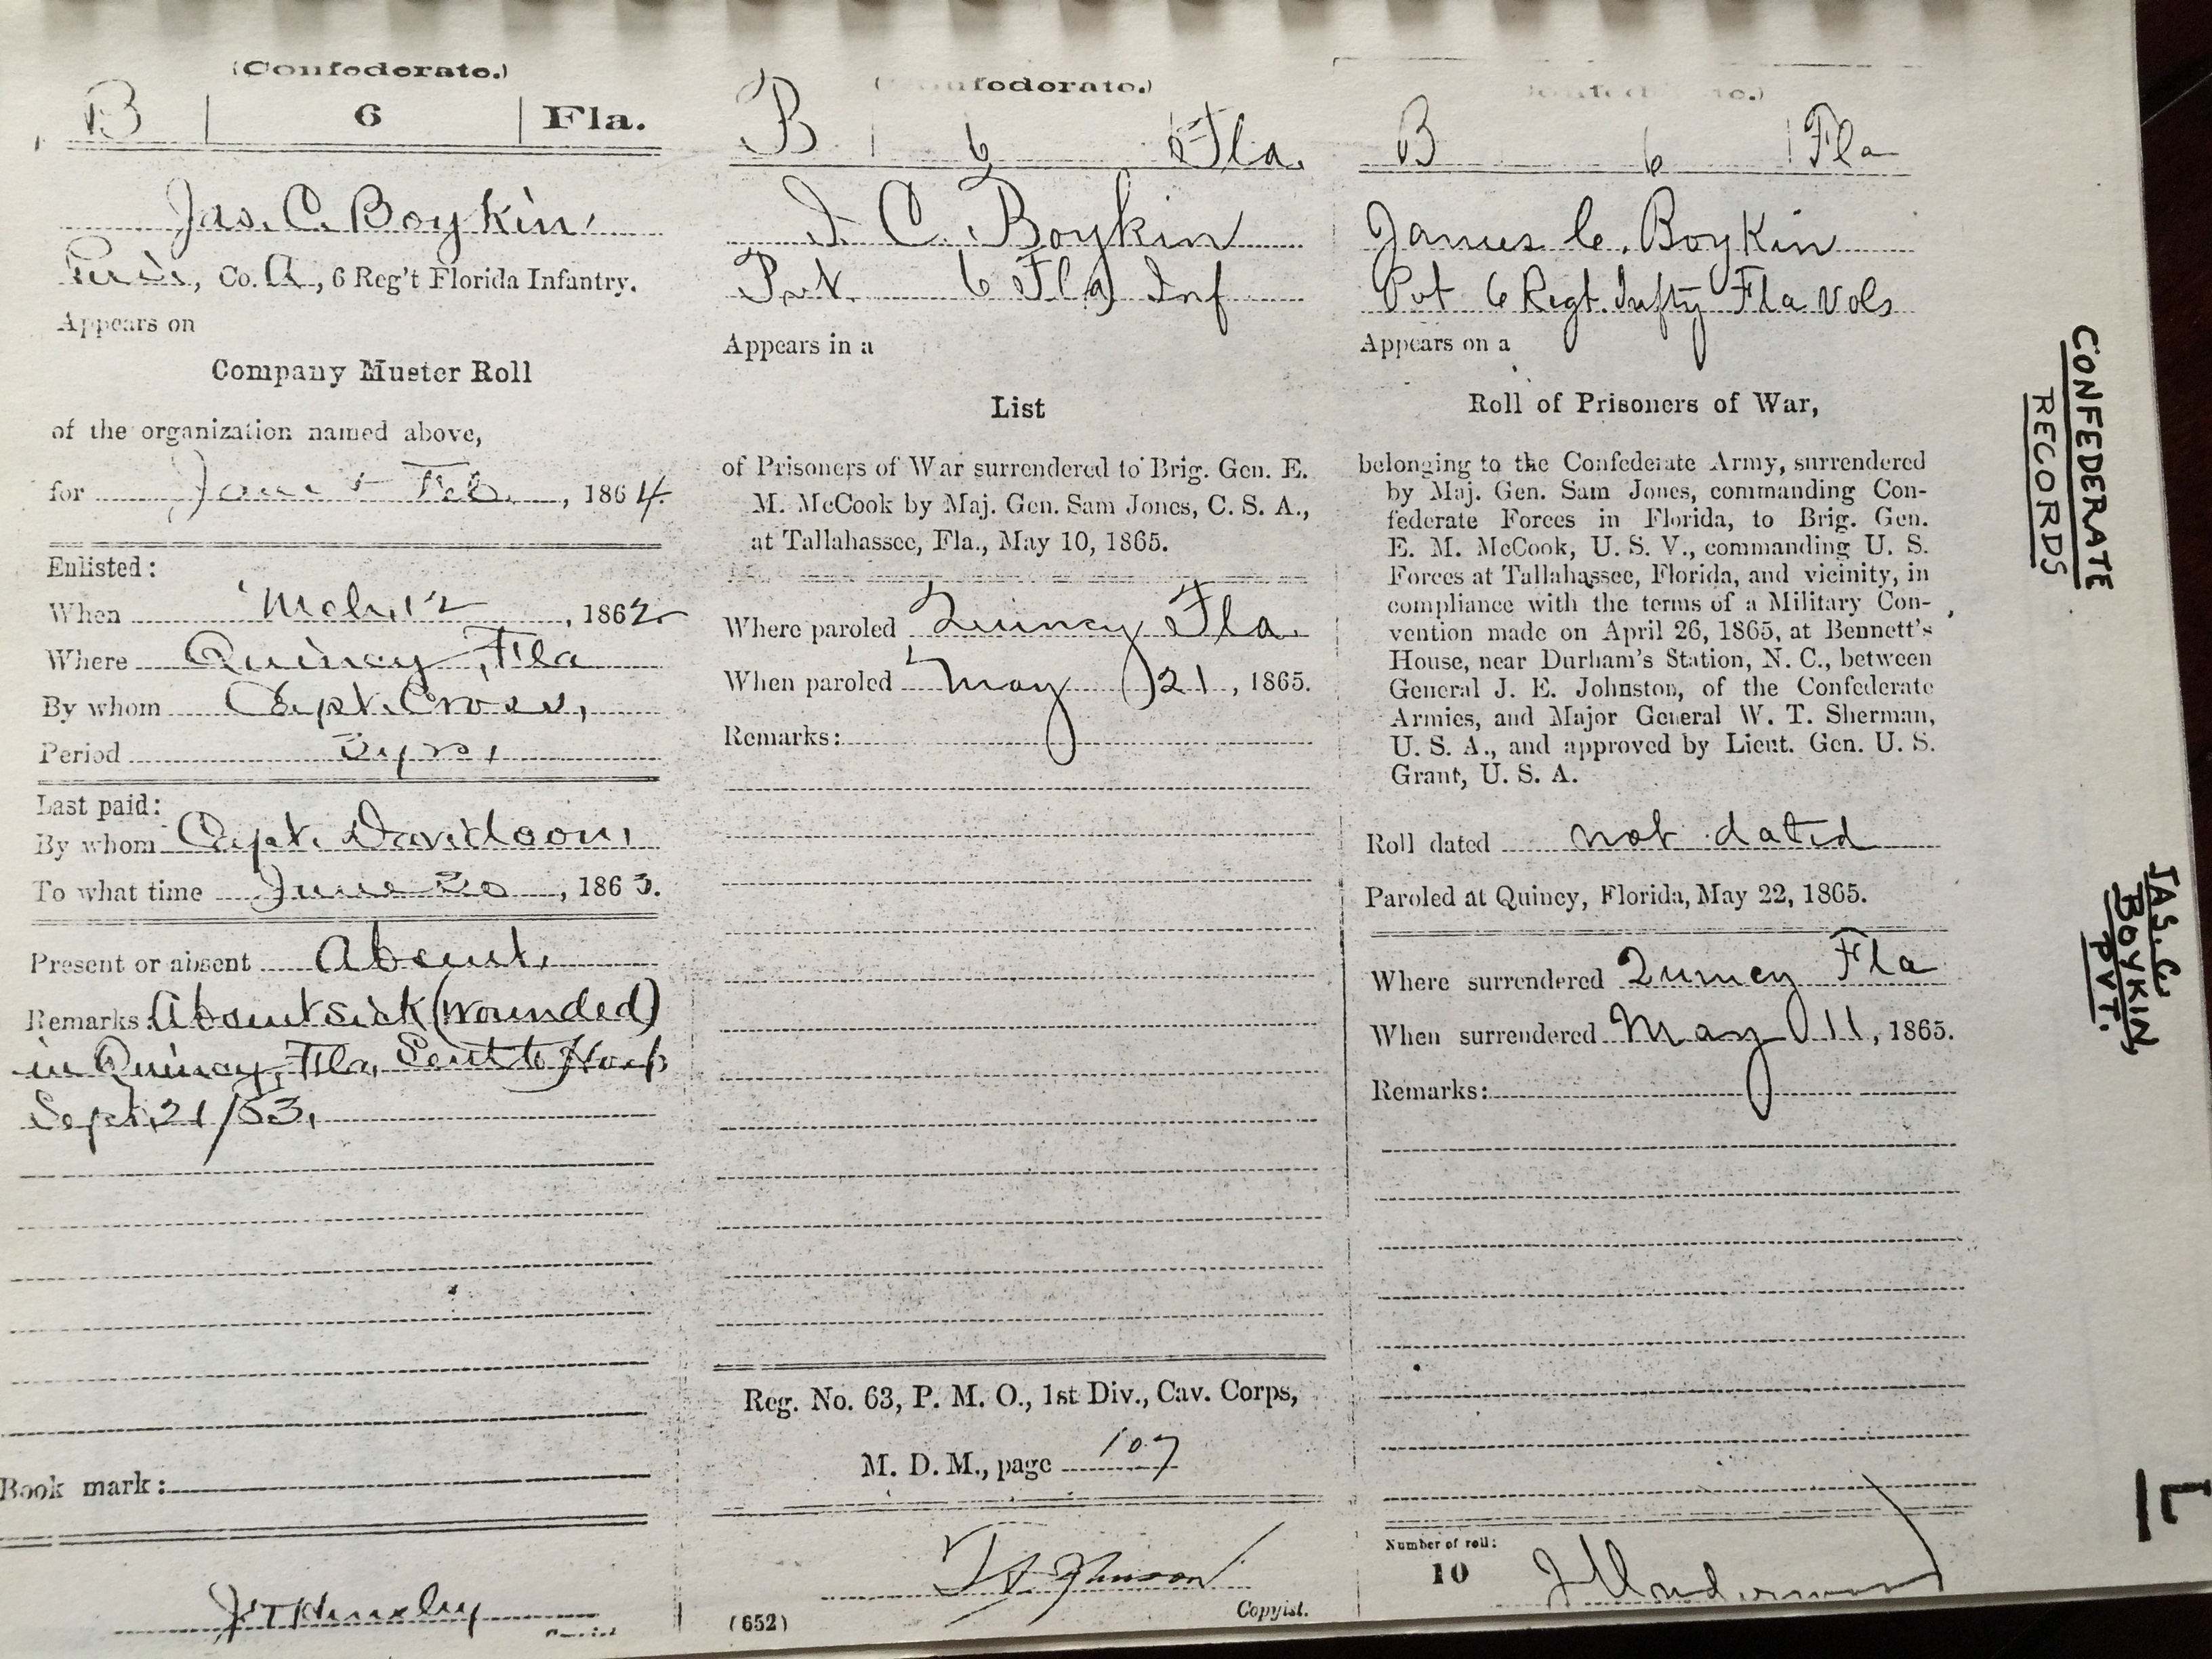 (Confederate.)
B | 6 | Fla.
Jas. C. Boykin,
Co. A, 6 Reg't Florida Infantry.
Appears on
Company Muster Roll
of the organization named above,
for Jan & Feb., 1864.
Enlisted:
When Mch. 12, 1862
Where Quincy, Fla
By whom Capt. Cross,
Period 3 yrs,
Last paid:
By whom Capt. Davidson,
To what time June 30, 1863.
Present or absent Absent.
Remarks: Absent sick (wounded)
in Quincy, Fla, Sent to Hosp
Sept. 21/63.
Book mark:
B 6 Fla.
C. Boykin
Pvt. 6 Fla Inf
Appears in a
List
of Prisoners of War surrendered to Brig. Gen. E.
M. McCook by Maj. Gen. Sam Jones, C. S. A.,
at Tallahassee, Fla., May 10, 1865.
Where paroled Quincy Fla.
When paroled May 21, 1865.
Remarks:
Reg. No. 63, P. M. O., 1st Div., Cav. Corps,
M. D. M., page 107
(652) Copyist.
B 6 Fla
James C. Boykin
Pvt 6 Regt. Infty Fla Vols
Appears on a
Roll of Prisoners of War,
belonging to the Confederate Army, surrendered
by Maj. Gen. Sam Jones, commanding Con-
federate Forces in Florida, to Brig. Gen.
E. M. McCook, U. S. V., commanding U. S.
Forces at Tallahassee, Florida, and vicinity, in
compliance with the terms of a Military Con-
vention made on April 26, 1865, at Bennett's
House, near Durham's Station, N. C., between
General J. E. Johnston, of the Confederate
Armies, and Major General W. T. Sherman,
U. S. A., and approved by Lieut. Gen. U. S.
Grant, U. S. A.
Roll dated not dated
Paroled at Quincy, Florida, May 22, 1865.
Where surrendered Quincy Fla
When surrendered May 11, 1865.
Remarks:
Number of roll:
10 J Underwood
CONFEDERATE
RECORDS
JAS. C.
BOYKIN
PVT.